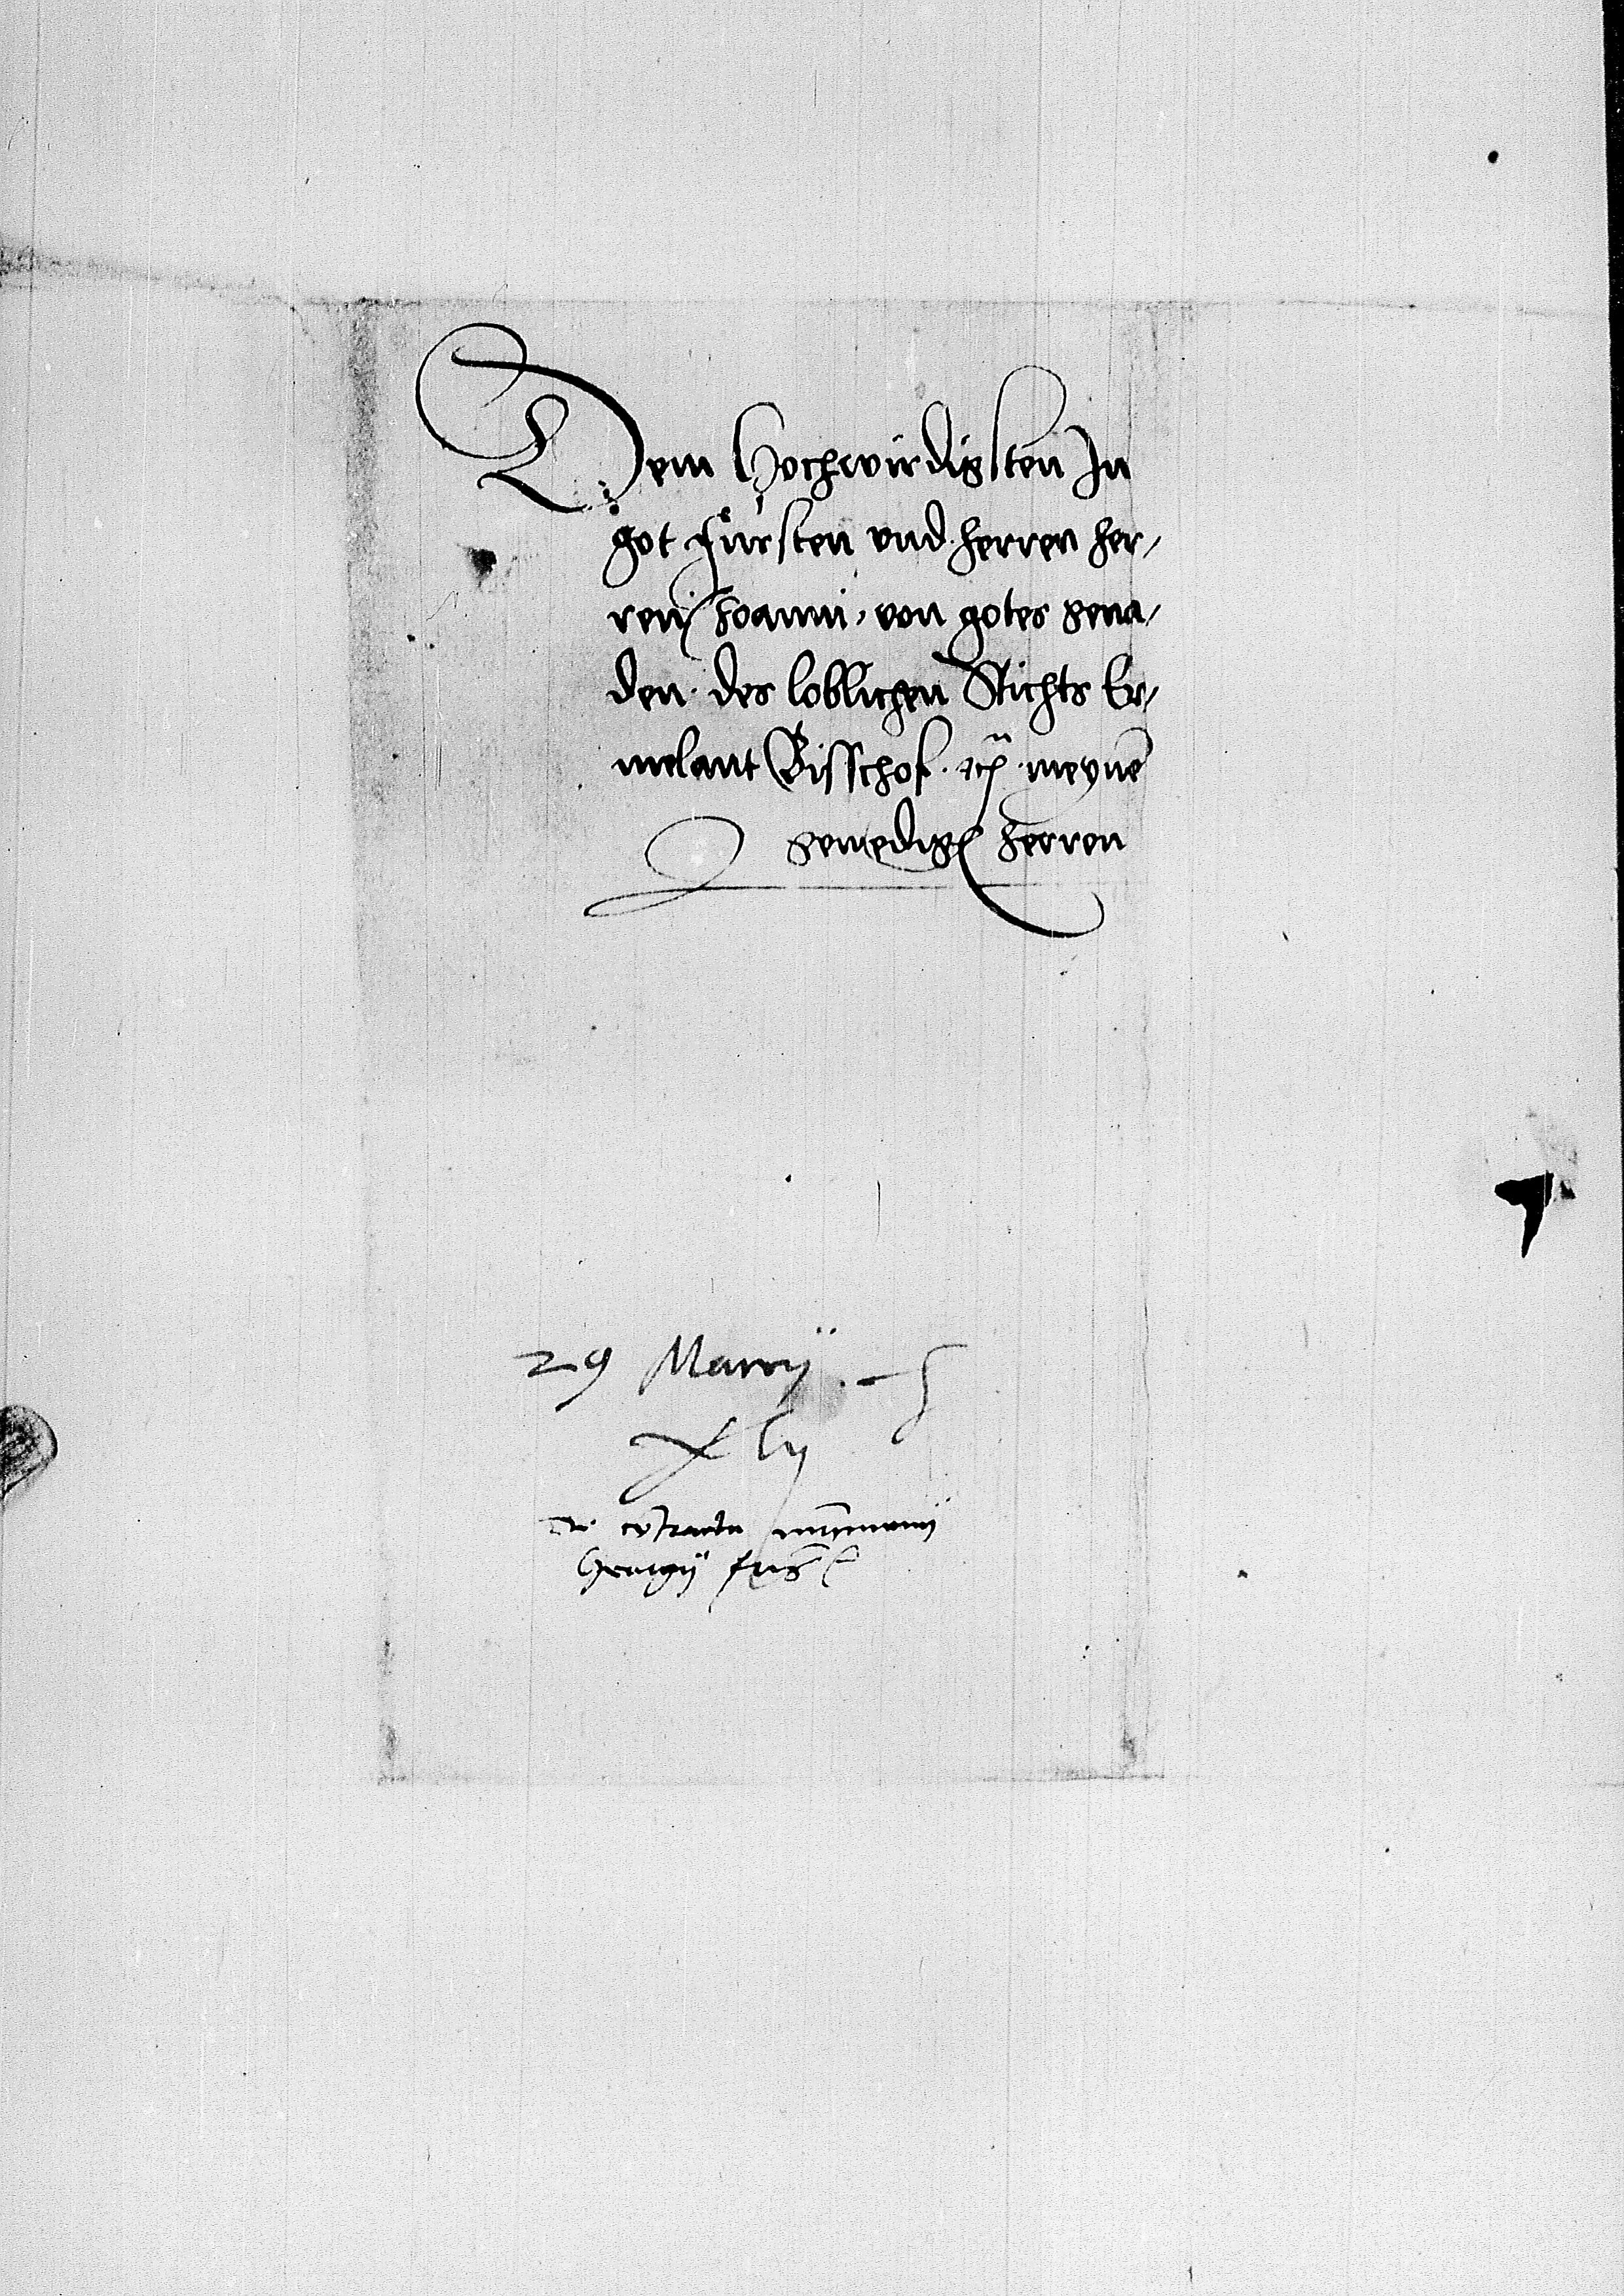 Dem Hochwirdigsten In
got Fürsten vnd herren her-
ren Joanni, von gotes gena-
den des loblichen Stichts Er-
melant Bisschof. ꝛc. meynē
genedigē herren
29 Marcij
xlij
de cōtractu
Georgij